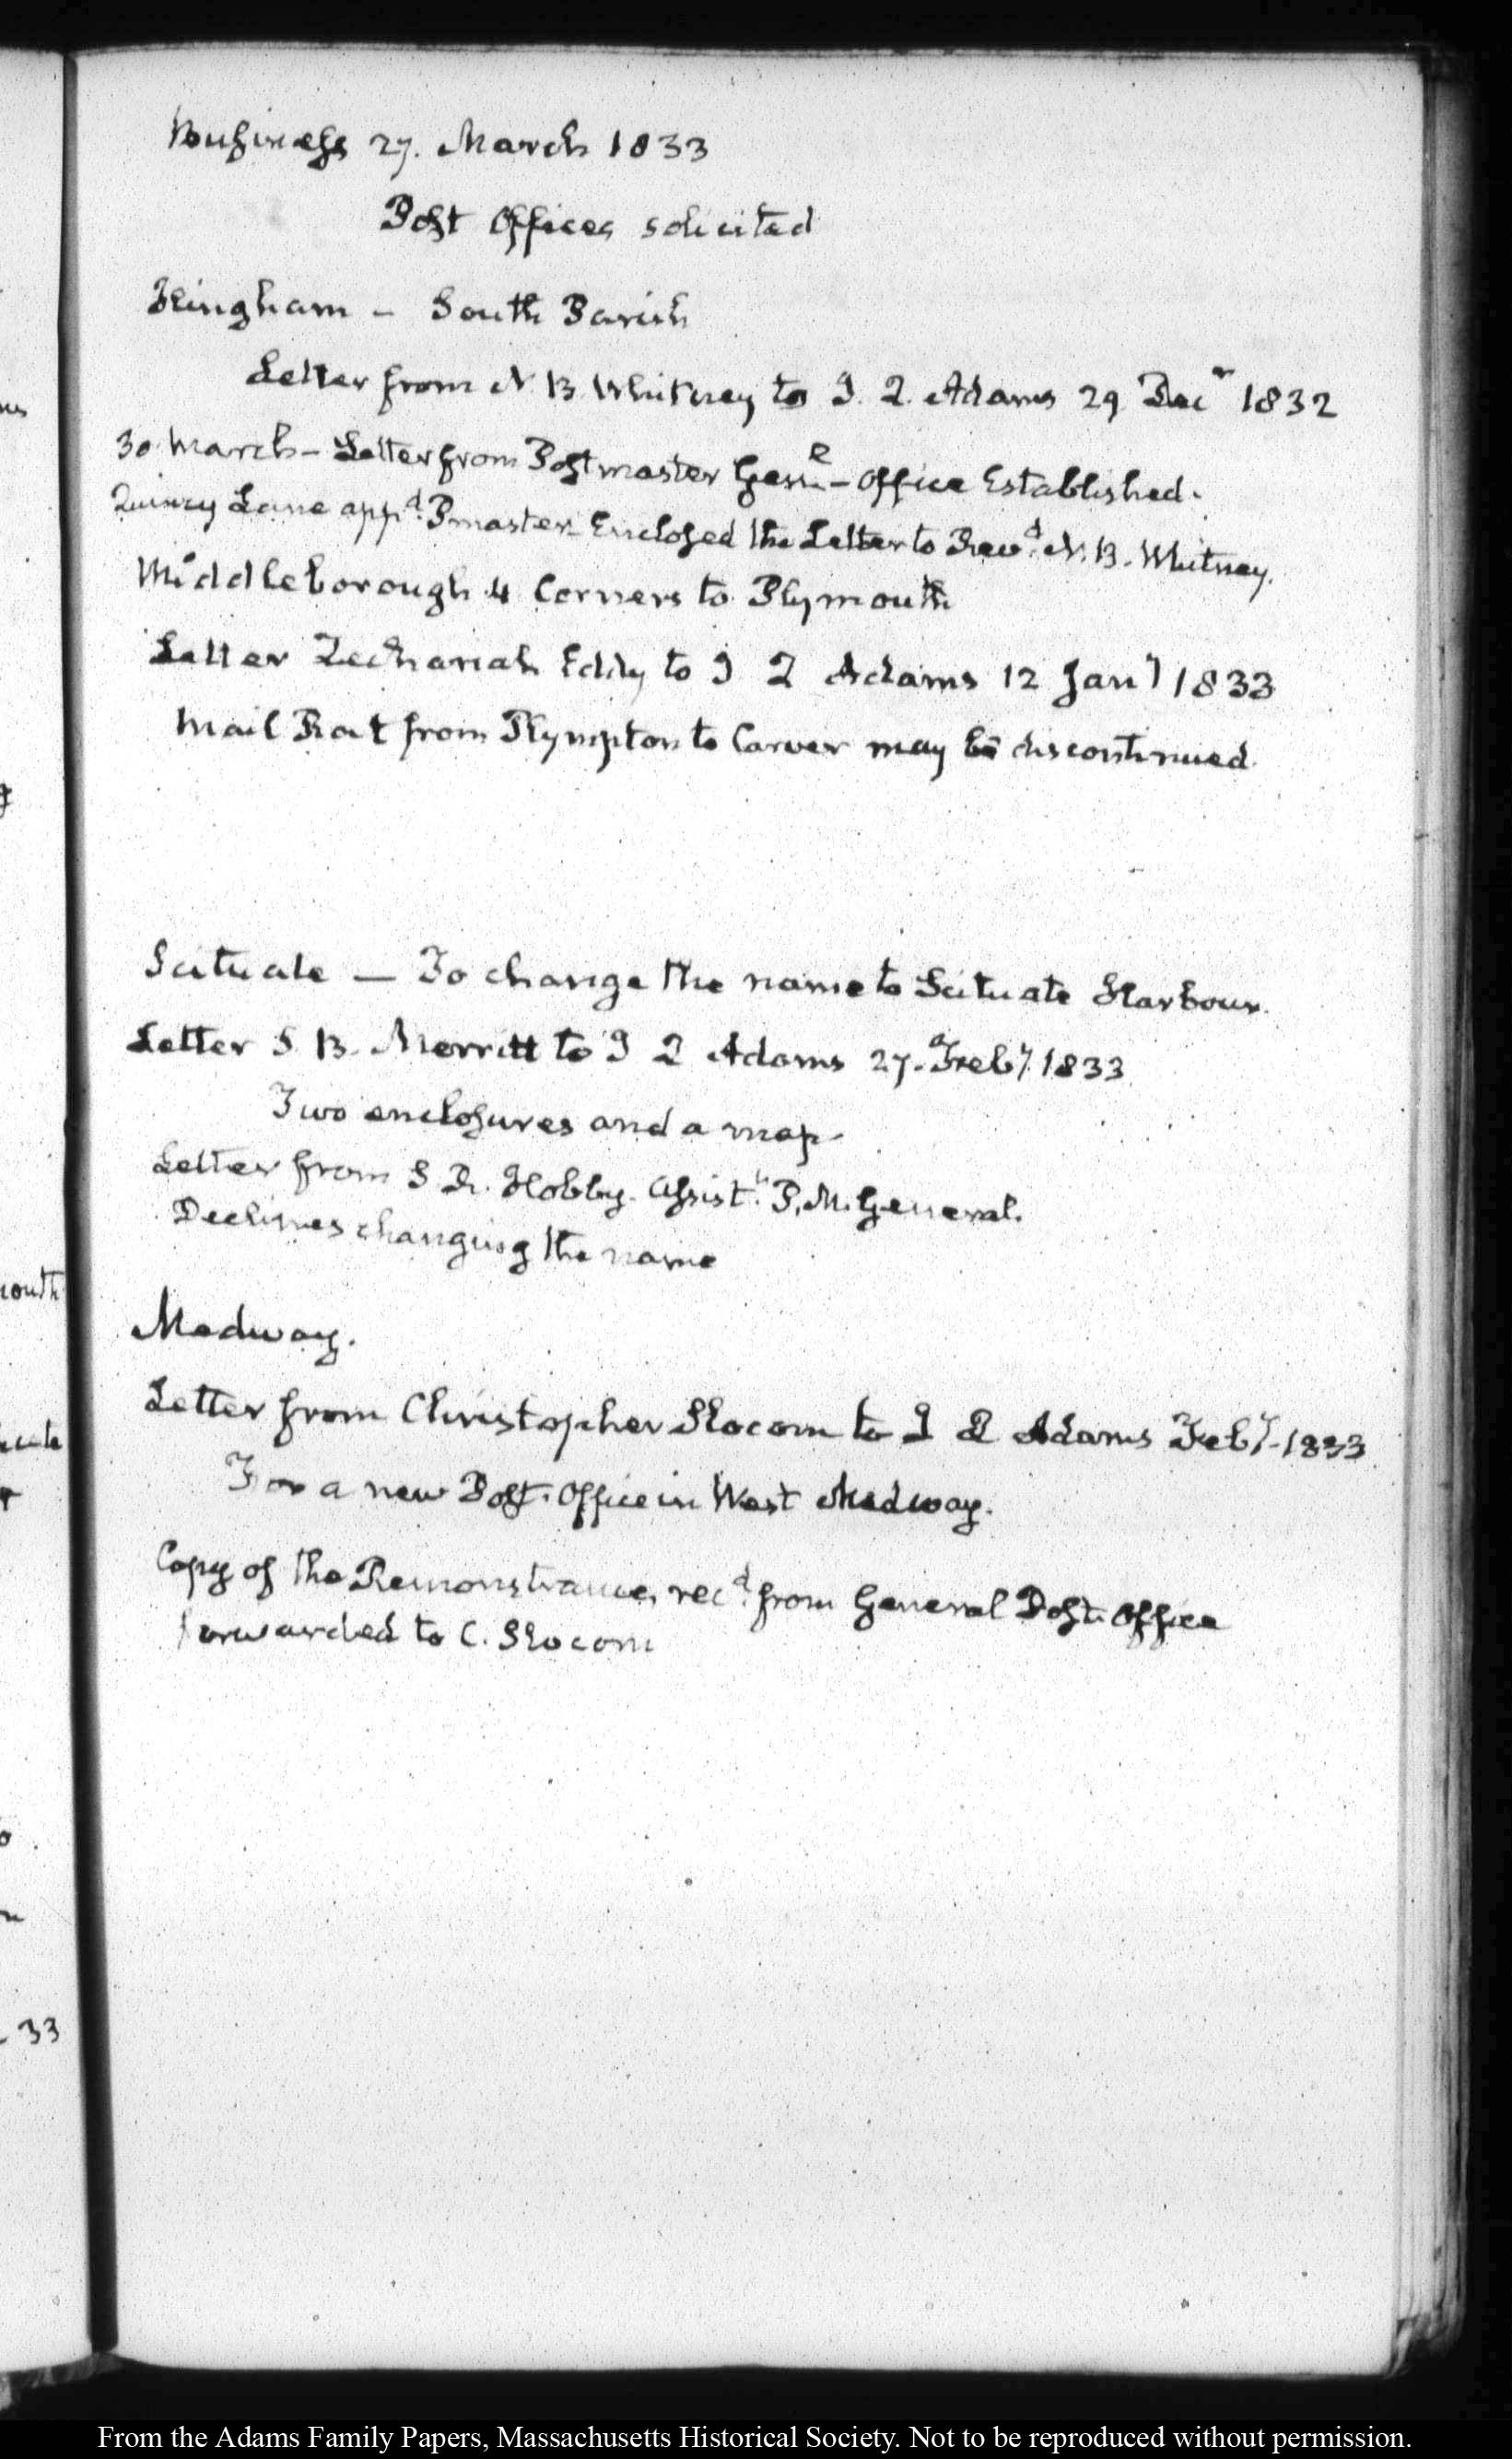 Business 27. March 1833
Post Offices solicited
Hingham – South Parish
Letter from N. B. Whitney to J. Q. Adams 29 Decr 1832
30 March – Letter from Postmaster Genl – Office Established.
Quincy Lane appd. Pmaster Enclosed the Letter to Revd. N. B. Whitney.
Middleborough 4 Corners to Plymouth
Letter Zechariah Eddy to J Q Adams 12 Jany 1833
Mail Rout from Plympton to Carver may be discontinued
Scituate — To change the name to Scituate Harbour.
Letter S. B. Merritt to J Q Adams 27. Feby. 1833
Two enclosures and a map.
Letter from S. R. Hobby. Assistt. P. M. General.
Declines changing the name
Medway.
Letter from Christopher Slocom to J Q Adams Feby. 1833
For a new Post. Office in West Medway.
Copy of the Remonstrance, recd. from General Post. Office
forwarded to C. Slocom
outh
33
From the Adams Family Papers, Massachusetts Historical Society. Not to be reproduced without permission.